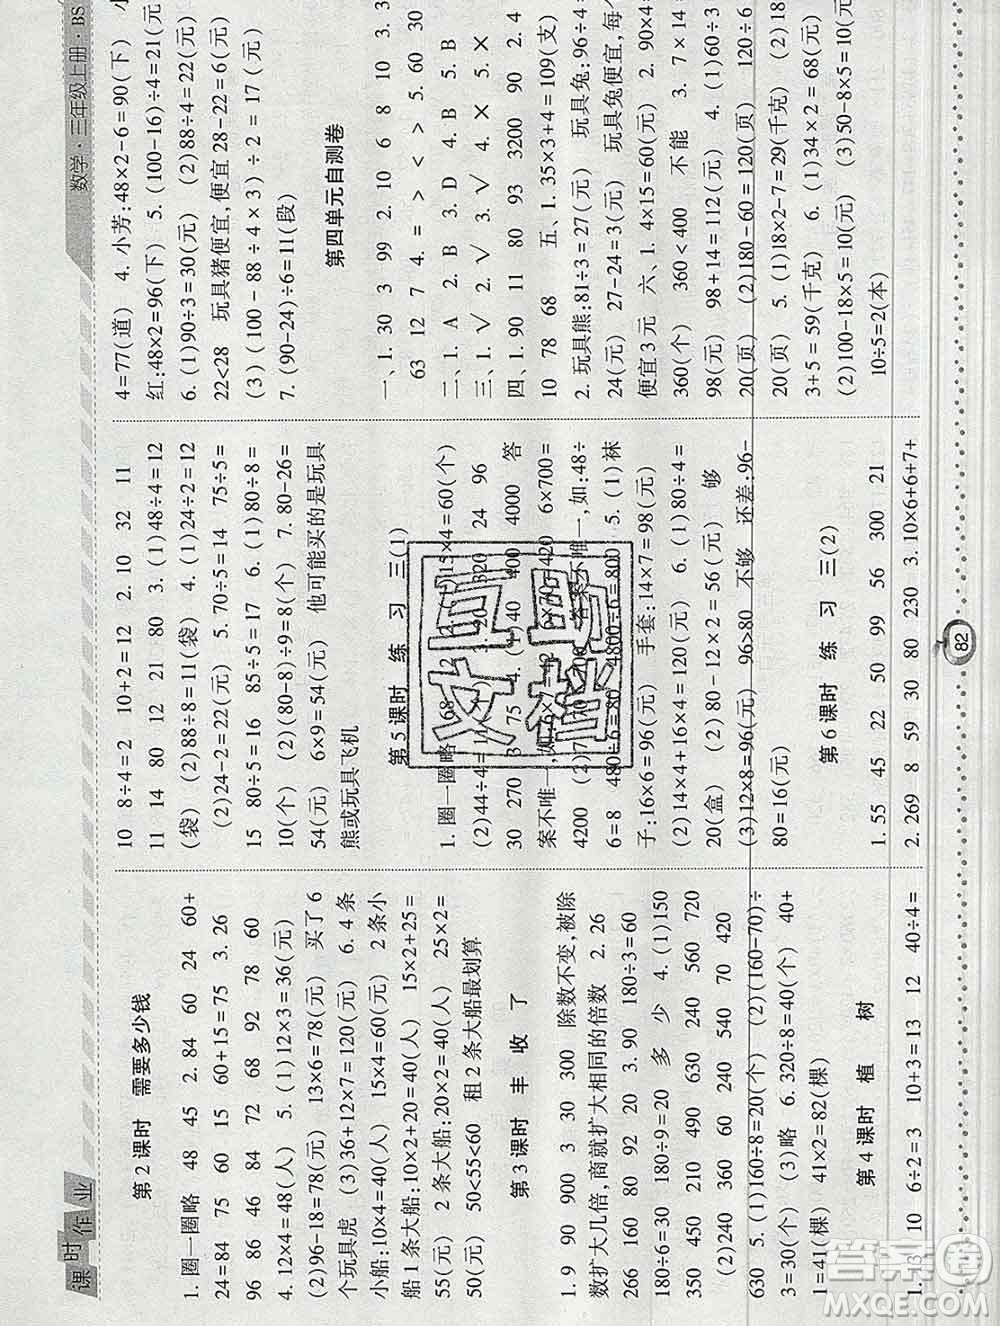 课时作业
数学·三年级上册·BS
第2课时 需要多少钱
1.圈一圈略 48 45 2.84 60 24 60+
24=84 75 60 15 60+15=75 3.26
96 86 46 84 72 68 92 78 60
4.12×4=48(人) 5.(1)12×3=36(元)
(2)96-18=78(元) 13×6=78(元) 买了6
个玩具虎 (3)36+12×7=120(元) 6.4条
小船:10×4=40(人) 15×4=60(元) 2条小
船1条大船:10×2+20=40(人) 15×2+25=
55(元) 2条大船:20×2=40(人) 25×2=
50(元) 50<55<60 租2条大船最划算
第3课时 丰收了
1.9 90 900 3 30 300 除数不变,被除
数扩大几倍,商就扩大相同的倍数 2.26
266 160 80 92 20 3.90 180÷3=60
180÷6=30 180÷9=20 多 少 4.(1)150
350 450 210 490 630 240 560 720
(2)240 360 60 240 540 70 420
630 5.(1)160÷8=20(个) (2)(160-70)÷
3=30(个) (3)略 6.320÷8=40(个) 40+
1=41(棵) 41×2=82(棵)
第4课时 植树
1.13 10 6÷2=3 10+3=13 12 40÷4=
10 8÷4=2 10+2=12 2.10 32 11
11 14 80 12 21 80 3.(1)48÷4=12
(袋) (2)88÷8=11(袋) 4.(1)24÷2=12
(2)24-2=22(元) 5.70÷5=14 75÷5=
15 80÷5=16 85÷5=17 6.(1)80÷8=
10(个) (2)(80-8)÷9=8(个) 7.80-26=
54(元) 6×9=54(元) 他可能买的是玩具
熊或玩具飞机
第5课时 练习三(1)
1.圈一圈略 68 15×4=60(个)
(2)44÷4=11 20 320 24 96
30 270 3 75 4. 40 400 4000 答
案不唯一,如 6×70=420 6×700=
4200 (2)7 70 700 答案不唯一,如:48÷
6=8 480÷6=80 4800÷6=800 5.(1)袜
子:16×6=96(元) 手套:14×7=98(元)
(2)14×4+16×4=120(元) 6.(1)80÷4=
20(盒) (2)80-12×2=56(元) 够
(3)12×8=96(元) 96>80 不够 还差:96-
80=16(元)
第6课时 练习三(2)
1.55 45 22 50 99 56 300 21
2.269 8 59 30 80 230 3.10×6+6+7+
4=77(道) 4.小芳:48×2-6=90(下) 小
红:48×2=96(下) 5.(100-16)÷4=21(元)
6.(1)90÷3=30(元) (2)88÷4=22(元)
22<28 玩具猪便宜,便宜28-22=6(元)
(3)(100-88÷4×3)÷2=17(元)
7.(90-24)÷6=11(段)
第四单元自测卷
一、1.30 3 99 2.10 6 8 10 3.3
63 12 7 4.= > < > 5.60 30
二、1.A 2.B 3.D 4.B 5.B
三、1.√ 2.√ 3.√ 4.× 5.×
四、1.90 11 80 93 3200 90 2.4
10 78 68 五、1.35×3+4=109(支)
2.玩具熊:81÷3=27(元) 玩具兔:96÷4=
24(元) 27-24=3(元) 玩具兔便宜,每
便宜3元 六、1.4×15=60(元) 2.90×4=
360(个) 360<400 不能 3.7×14=
98(元) 98+14=112(元) 4.(1)60÷3=
20(页) (2)180-60=120(页) 120÷6=
20(页) 5.(1)18×2-7=29(千克) (2)18×
3+5=59(千克) 6.(1)34×2=68(元)
(2)100-18×5=10(元) (3)50-8×5=10(元)
10÷5=2(本)
82
答案圈
MXQE.COM